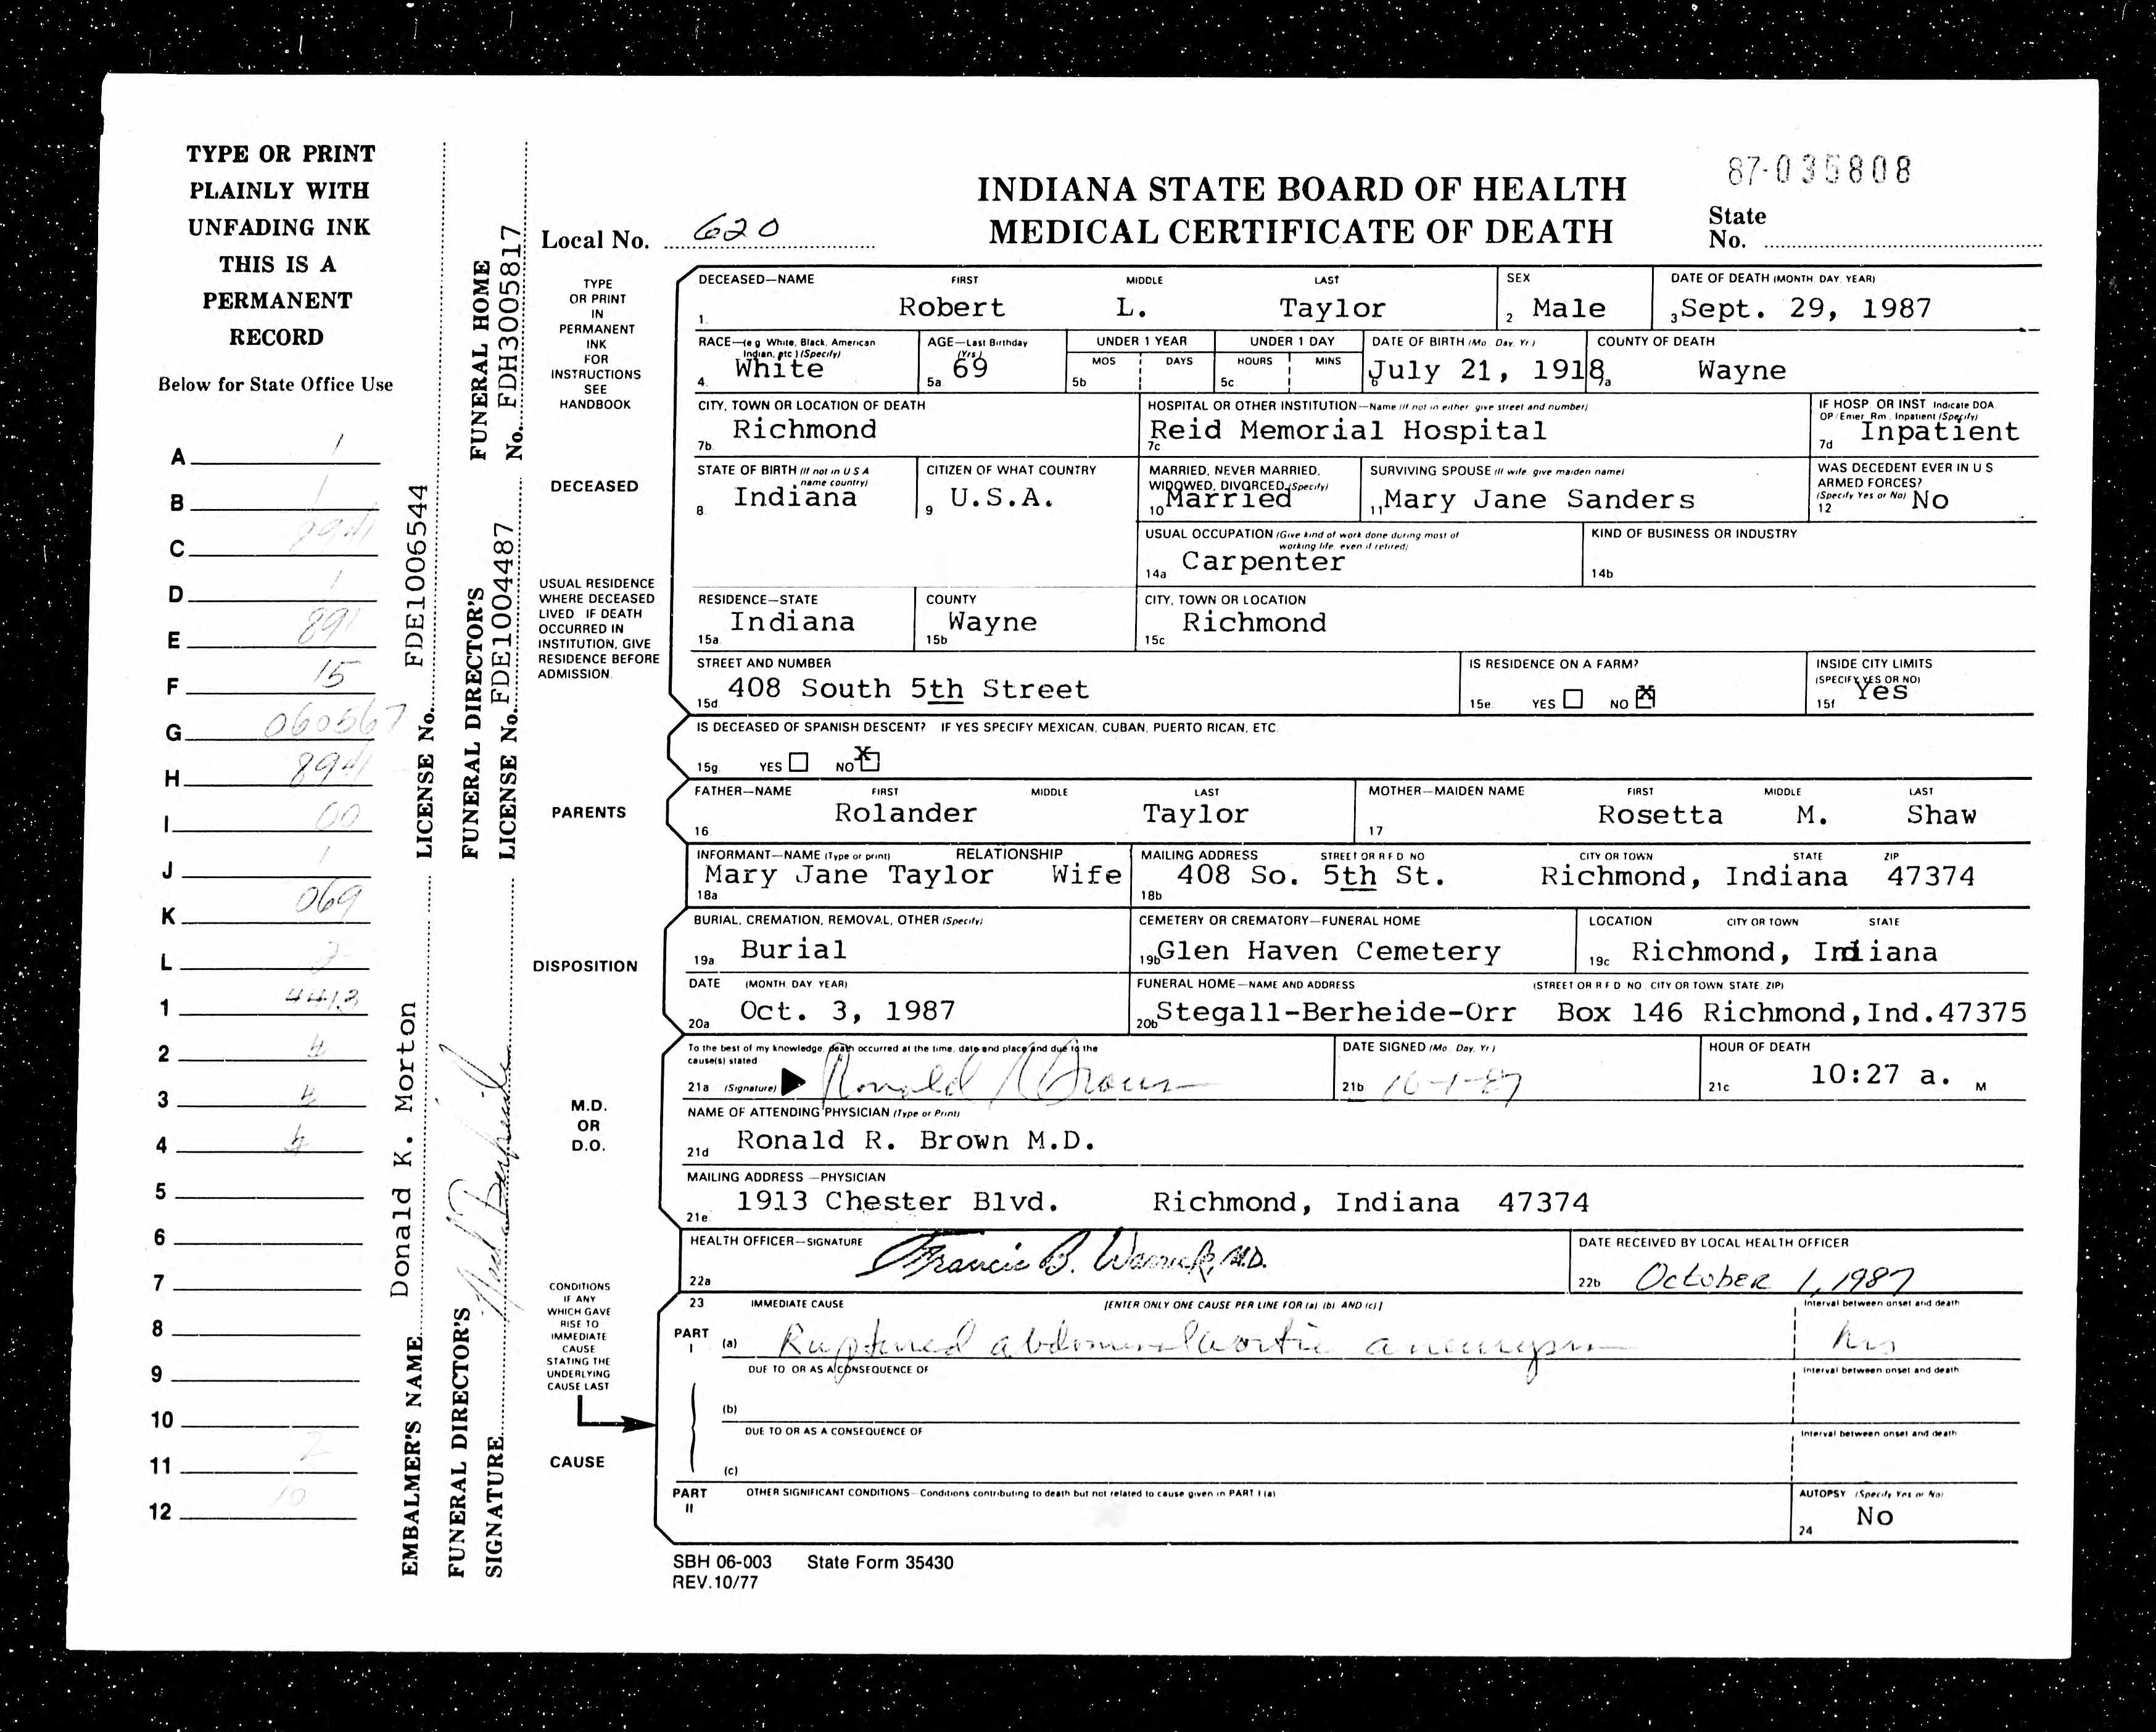 TYPE OR PRINT
PLAINLY WITH
UNFADING INK
THIS IS A
PERMANENT
RECORD
Below for State Office Use
A 1
B 1
C
D 1
E 891
F 15
G 060567
H 8941
I 00
J 1
K 069
L 2
1 4413
2
3
4
5
6
7
8
9
10
11 2
12 10
EMBALMER'S NAME Donald K. Morton LICENSE No. FDE1006544
FUNERAL DIRECTOR'S SIGNATURE
FUNERAL DIRECTOR'S LICENSE No. FDE1004487
FUNERAL HOME No. FDH3005817
87-035808
INDIANA STATE BOARD OF HEALTH
MEDICAL CERTIFICATE OF DEATH
Local No. 620
State
No.
TYPE
OR PRINT
IN
PERMANENT
INK
FOR
INSTRUCTIONS
SEE
HANDBOOK
DECEASED—NAME FIRST MIDDLE LAST SEX DATE OF DEATH (MONTH, DAY, YEAR)
1. Robert L. Taylor 2 Male 3 Sept. 29, 1987
RACE—(e.g. White, Black, American Indian, etc.) (Specify) AGE—Last Birthday (Yrs.) UNDER 1 YEAR UNDER 1 DAY DATE OF BIRTH (Mo., Day, Yr.) COUNTY OF DEATH
MOS DAYS HOURS MINS
4. White 5a 69 5b 5c 6 July 21, 1918 7a Wayne
CITY, TOWN OR LOCATION OF DEATH HOSPITAL OR OTHER INSTITUTION—Name (If not in either, give street and number) IF HOSP. OR INST. Indicate DOA, OP/Emer. Rm., Inpatient (Specify)
7b Richmond 7c Reid Memorial Hospital 7d Inpatient
DECEASED
STATE OF BIRTH (If not in U S A name country) CITIZEN OF WHAT COUNTRY MARRIED, NEVER MARRIED, WIDOWED, DIVORCED (Specify) SURVIVING SPOUSE (If wife, give maiden name) WAS DECEDENT EVER IN U S ARMED FORCES? (Specify Yes or No)
8 Indiana 9 U.S.A. 10 Married 11 Mary Jane Sanders 12 No
USUAL OCCUPATION (Give kind of work done during most of working life, even if retired) KIND OF BUSINESS OR INDUSTRY
14a Carpenter 14b
USUAL RESIDENCE
WHERE DECEASED
LIVED IF DEATH
OCCURRED IN
INSTITUTION, GIVE
RESIDENCE BEFORE
ADMISSION.
RESIDENCE—STATE COUNTY CITY, TOWN OR LOCATION
15a Indiana 15b Wayne 15c Richmond
STREET AND NUMBER IS RESIDENCE ON A FARM? INSIDE CITY LIMITS (SPECIFY YES OR NO)
15d 408 South 5th Street 15e YES NO X 15f Yes
IS DECEASED OF SPANISH DESCENT? IF YES SPECIFY MEXICAN, CUBAN, PUERTO RICAN, ETC.
15g YES NO X
PARENTS
FATHER—NAME FIRST MIDDLE LAST MOTHER—MAIDEN NAME FIRST MIDDLE LAST
16 Rolander Taylor 17 Rosetta M. Shaw
INFORMANT—NAME (Type or print) RELATIONSHIP MAILING ADDRESS STREET OR R F D NO CITY OR TOWN STATE ZIP
18a Mary Jane Taylor Wife 18b 408 So. 5th St. Richmond, Indiana 47374
DISPOSITION
BURIAL, CREMATION, REMOVAL, OTHER (Specify) CEMETERY OR CREMATORY—FUNERAL HOME LOCATION CITY OR TOWN STATE
19a Burial 19b Glen Haven Cemetery 19c Richmond, Indiana
DATE (MONTH, DAY, YEAR) FUNERAL HOME—NAME AND ADDRESS (STREET OR R F D NO., CITY OR TOWN, STATE, ZIP)
20a Oct. 3, 1987 20b Stegall-Berheide-Orr Box 146 Richmond,Ind.47375
M.D.
OR
D.O.
To the best of my knowledge, death occurred at the time, date and place and due to the cause(s) stated DATE SIGNED (Mo., Day, Yr.) HOUR OF DEATH
21a (Signature) Ronald R Brown 21b 10-1-87 21c 10:27 a. M
NAME OF ATTENDING PHYSICIAN (Type or Print)
21d Ronald R. Brown M.D.
MAILING ADDRESS—PHYSICIAN
21e 1913 Chester Blvd. Richmond, Indiana 47374
HEALTH OFFICER—SIGNATURE DATE RECEIVED BY LOCAL HEALTH OFFICER
22a Francis B. Warrick, M.D. 22b October 1, 1987
CONDITIONS
IF ANY
WHICH GAVE
RISE TO
IMMEDIATE
CAUSE
STATING THE
UNDERLYING
CAUSE LAST
CAUSE
23 IMMEDIATE CAUSE [ENTER ONLY ONE CAUSE PER LINE FOR (a) (b) AND (c)] Interval between onset and death
PART I (a) Ruptured abdominal aortic aneurysm hrs
DUE TO OR AS A CONSEQUENCE OF Interval between onset and death
(b)
DUE TO OR AS A CONSEQUENCE OF Interval between onset and death
(c)
PART II OTHER SIGNIFICANT CONDITIONS—Conditions contributing to death but not related to cause given in PART I (a) AUTOPSY (Specify Yes or No)
24 No
SBH 06-003 State Form 35430
REV.10/77